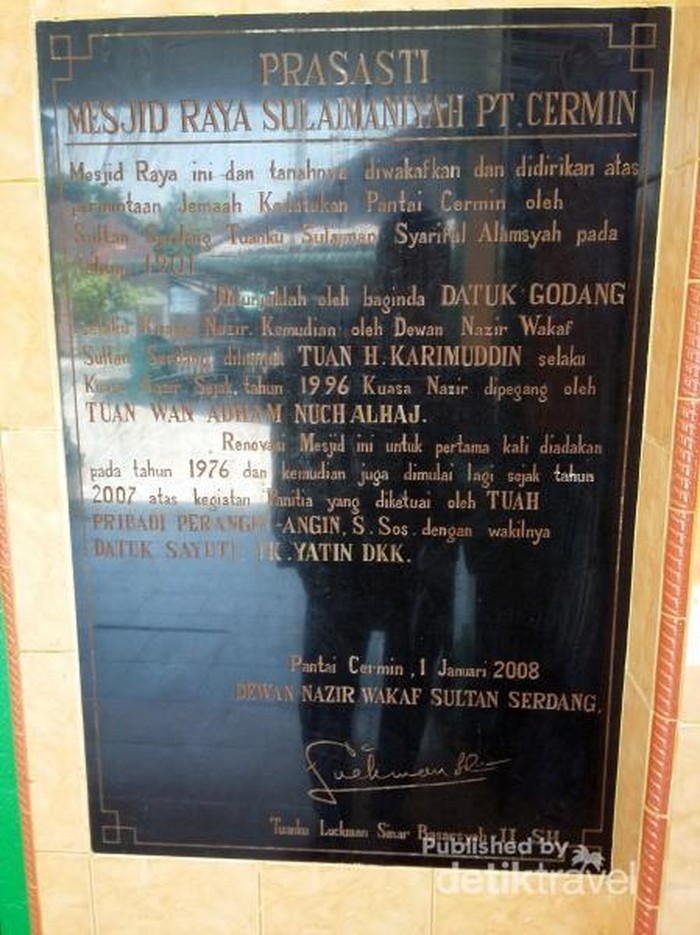 PRASASTI
MESJID RAYA SULAIMANIYAH PT. CERMIN
Mesjid Raya ini dan tanahnya diwakafkan dan didirikan atas
permintaan Jemaah Kedatukan Pantai Cermin oleh
Sultan Serdang Tuanku Sulaiman Syariful Alamsyah pada
tahun 1901
oleh baginda DATUK GODANG
selaku Kuasa Nazir. Kemudian oleh Dewan Nazir Wakaf
Sultan Serdang TUAN H. KARIMUDDIN selaku
Kuasa Nazir Sejak tahun 1996 Kuasa Nazir dipegang oleh
TUAN WAN ADHAM NUCH ALHAJ.
Renovasi Mesjid ini untuk pertama kali diadakan
pada tahun 1976 dan kemudian juga dimulai lagi sejak tahun
2007 atas kegiatan Panitia yang diketuai oleh TUAH
PRIBADI PERANGIN-ANGIN, S.Sos. dengan wakilnya
DATUK SAYUTI TK. YATIN DKK.
Pantai Cermin, 1 Januari 2008
DEWAN NAZIR WAKAF SULTAN SERDANG,
Tuanku Luckman Sinar Basarsyah II, SH
Published by
detiktravel